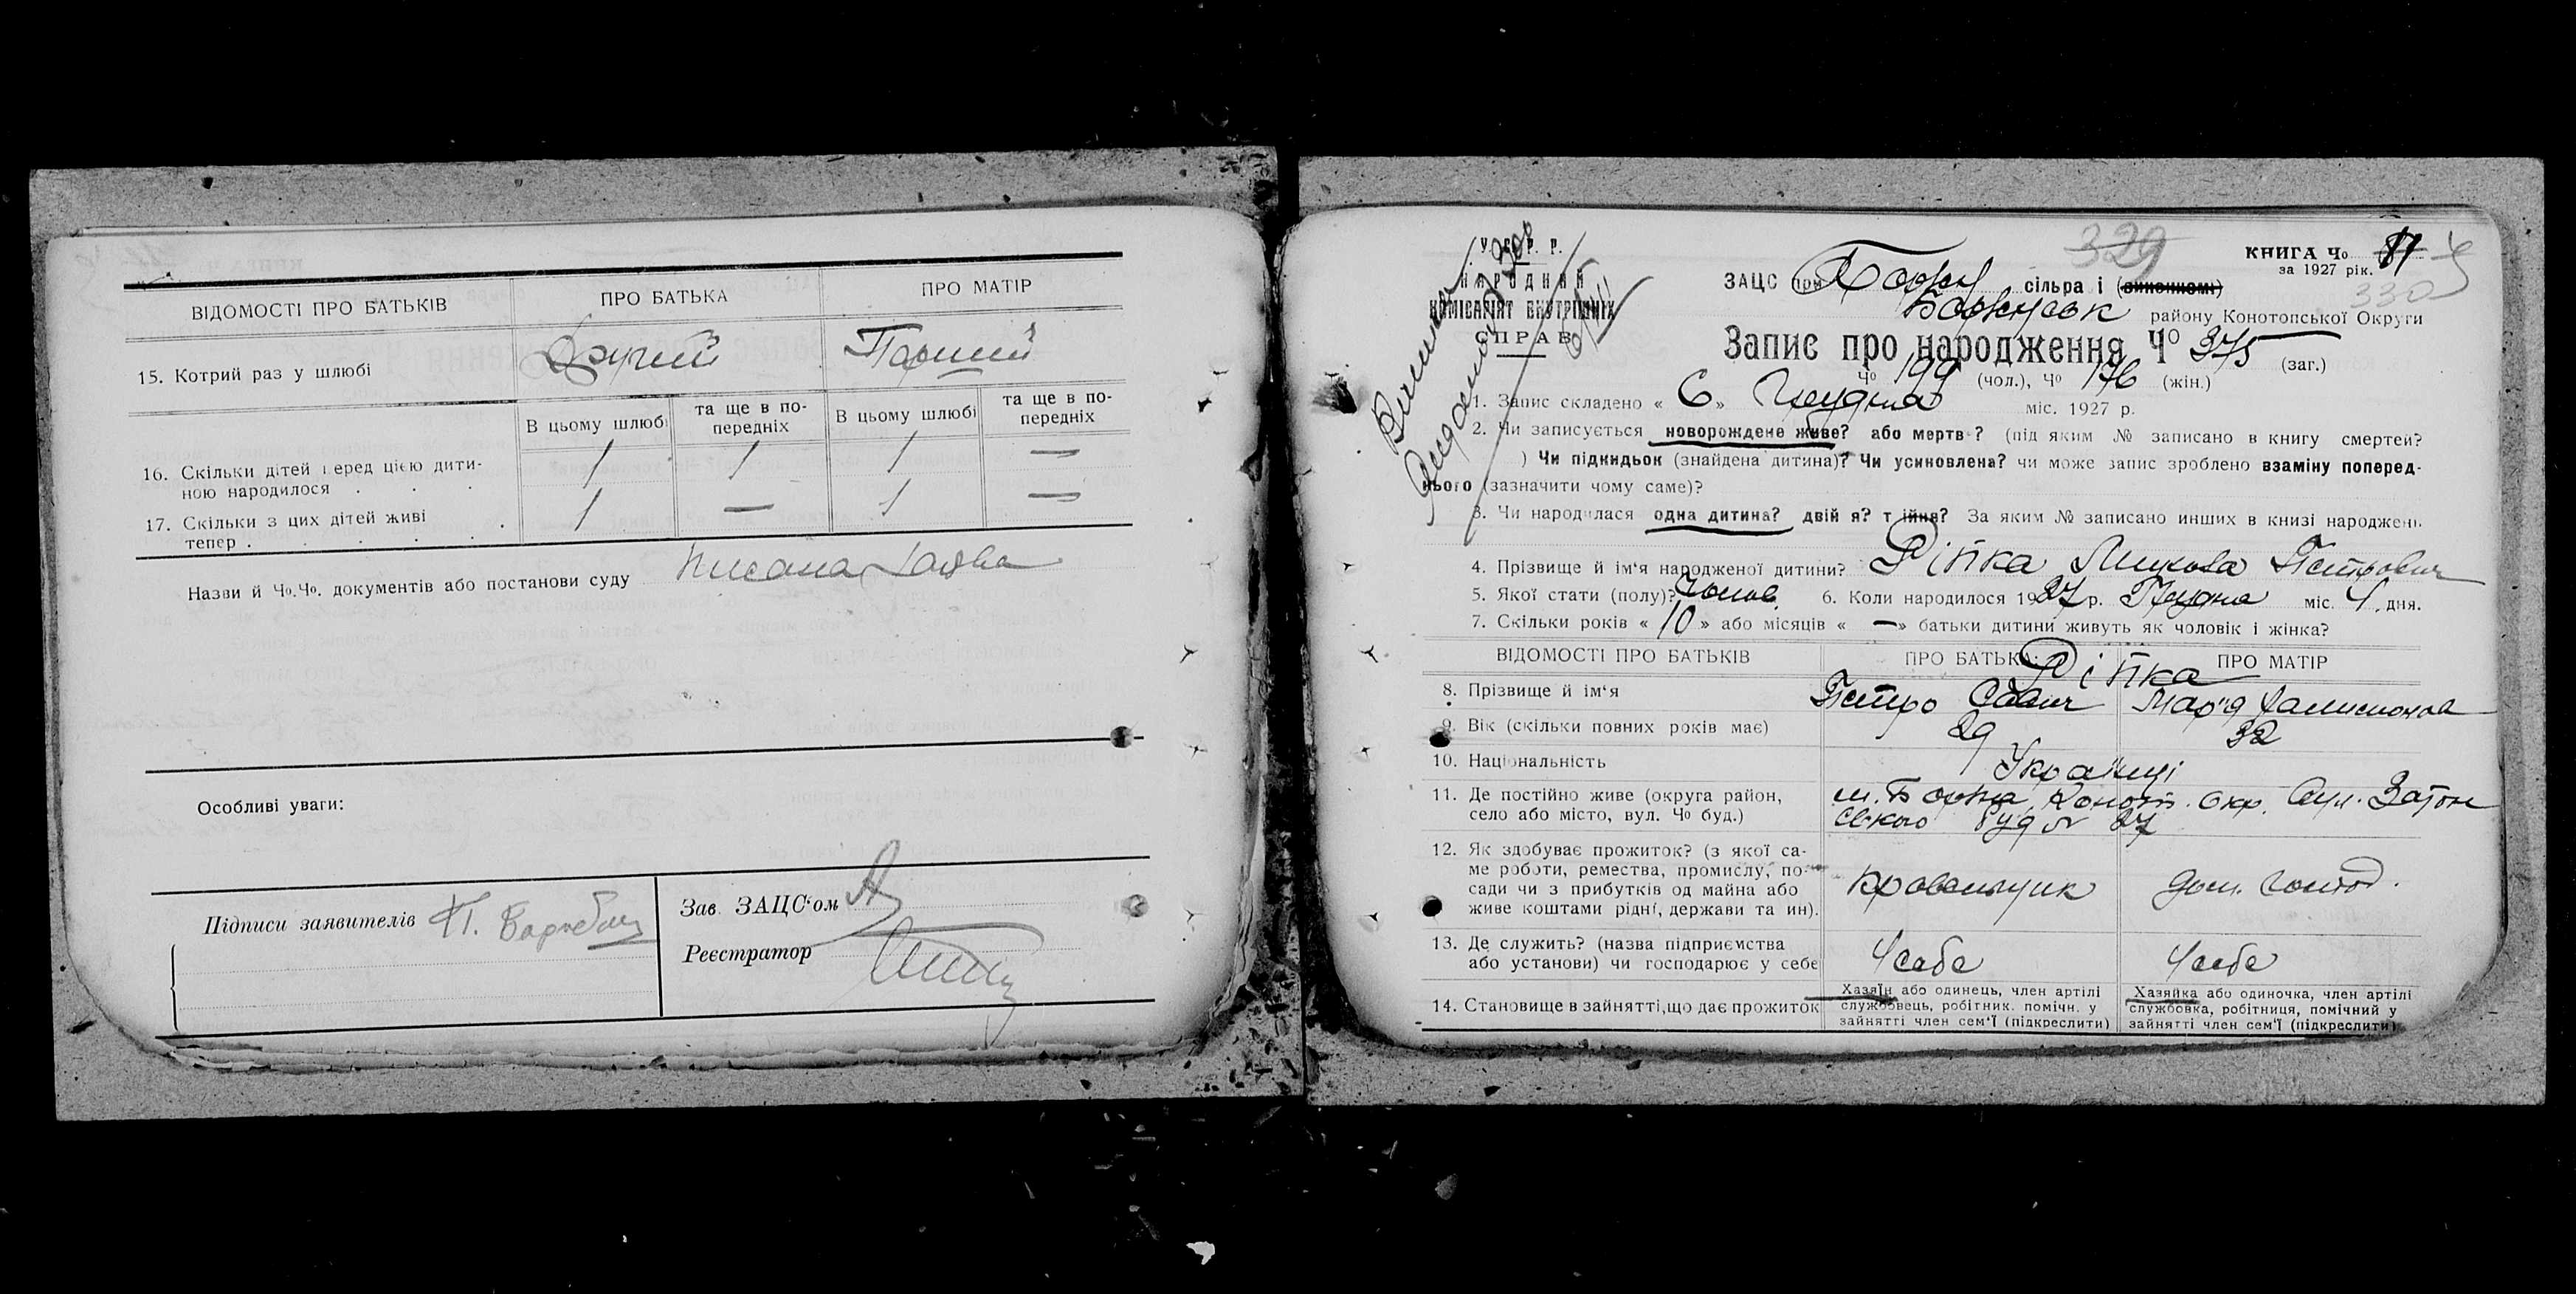 ВІДОМОСТІ ПРО БАТЬКІВ
ПРО БАТЬКА
ПРО МАТІР
15. Котрий раз у шлюбі
Другий
Перший
В цьому шлюбі
та ще в по-
передніх
В цьому шлюбі
та ще в по-
передніх
16. Скільки дітей перед цією дити-
ною народилося . . .
1 1 1 —
17. Скільки з цих дітей живі
тепер . . . . . .
1 — 1 —
Назви й Чо.Чо. документів або постанови суду
Особливі уваги:
Підписи заявителів
Зав. ЗАЦС'ом
Реєстратор
У. С. Р. Р.
НАРОДНИЙ
КОМІСАРІЯТ ВНУТРІШНІХ
СПРАВ
329
КНИГА Чо
за 1927 рік.
330
ЗАЦС при сільра і
району Конотопської Округи
Запис про народження Чо 375 (заг.)
Чо 199 (чол.), Чо 176 (жін.)
1. Запис складено « 6 » Грудня міс. 1927 р.
2. Чи записується новорождене живе? або мертве? (під яким № записано в книгу смертей?
) Чи підкидьок (знайдена дитина)? Чи усиновлена? чи може запис зроблено взаміну поперед-
нього (зазначити чому саме)?
3. Чи народилася одна дитина? двійня? трійня? За яким № записано инших в книзі народжень
4. Прізвище й ім'я народженої дитини? Ріпка Микола Петрович
5. Якої стати (полу)? Чолов. 6. Коли народилося 1927 р. Грудня міс. 4 дня.
7. Скільки років « 10 » або місяців « — » батьки дитини живуть як чоловік і жінка?
ВІДОМОСТІ ПРО БАТЬКІВ
ПРО БАТЬКА
ПРО МАТІР
Ріпка
8. Прізвище й ім'я
Петро Савич
Мар'я
9. Вік (скільки повних років має)
29
32
10. Національність
Українці
11. Де постійно живе (округа район,
село або місто, вул. Чо буд.)
м. Борзна, Конот. Окр. вул. Затон
ського буд № 27
12. Як здобуває прожиток? (з якої са-
ме роботи, ремества, промислу, по-
сади чи з прибутків од майна або
живе коштами рідні, держави та ин).
Кровельщик
дом. господ.
13. Де служить? (назва підприємства
або установи) чи господарює у себе
У себе
У себе
14. Становище в зайнятті, що дає прожиток
Хазяїн або одинець, член артілі
службовець, робітник. помічн. у
зайнятті член сем'ї (підкреслити)
Хазяйка або одиночка, член артілі
службовка, робітниця, помічний у
зайнятті член сем'ї (підкреслити)